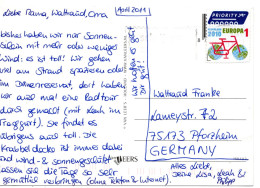 Liebe Mama, Waltraud, Oma
April 2011
bisher haben wir nur Sonnen-
schein mit mehr oder weniger
Wind: es ist toll! Wir gehen
viel am Strand spazieren oder
im Dünenreservat, dort haben
wir auch mal eine Radtour
dazu gemacht (mit Leah im
Tragegurt). Sie findet es
übrigens auch toll. Die
Krabbeldecke ist immer dabei
und wind- & sonnengeschützt
lassen sie die Tage so sehr
gemütlich verbringen (ohne Telefon & Internet)
PRIORITY
EUROPA 1
Waltraud Franke
Lameystr. 72
75173 Pforzheim
GERMANY
Alles Liebe,
Deine Lisa, Leah &
Philipp